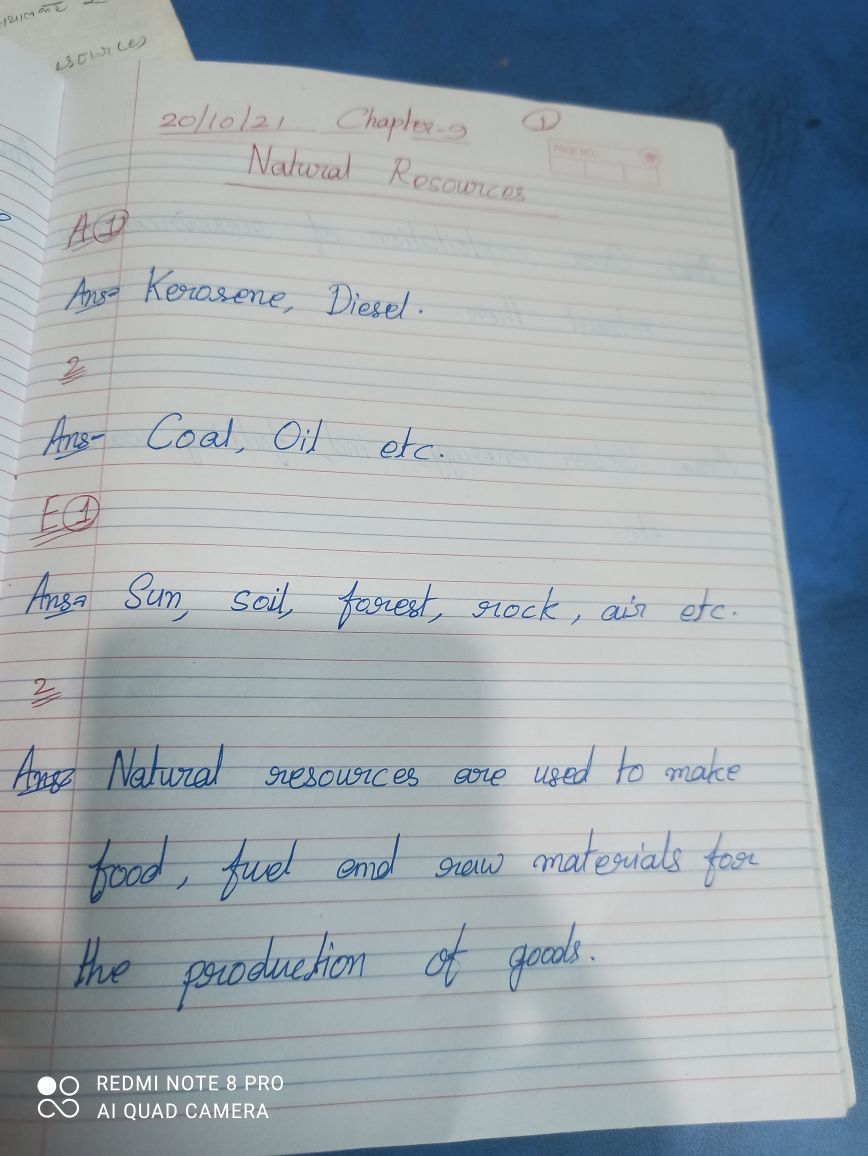 sources
20/10/21 Chapter-9 1
PAGE NO.
Natural Resources
A 1
Ans= Kerosene, Diesel.
2
Ans- Coal, Oil etc.
E 1
Ans= Sun, soil, forest, rock, air etc.
2
Ans= Natural resources are used to make
food, fuel and raw materials for
the production of goods.
REDMI NOTE 8 PRO
AI QUAD CAMERA